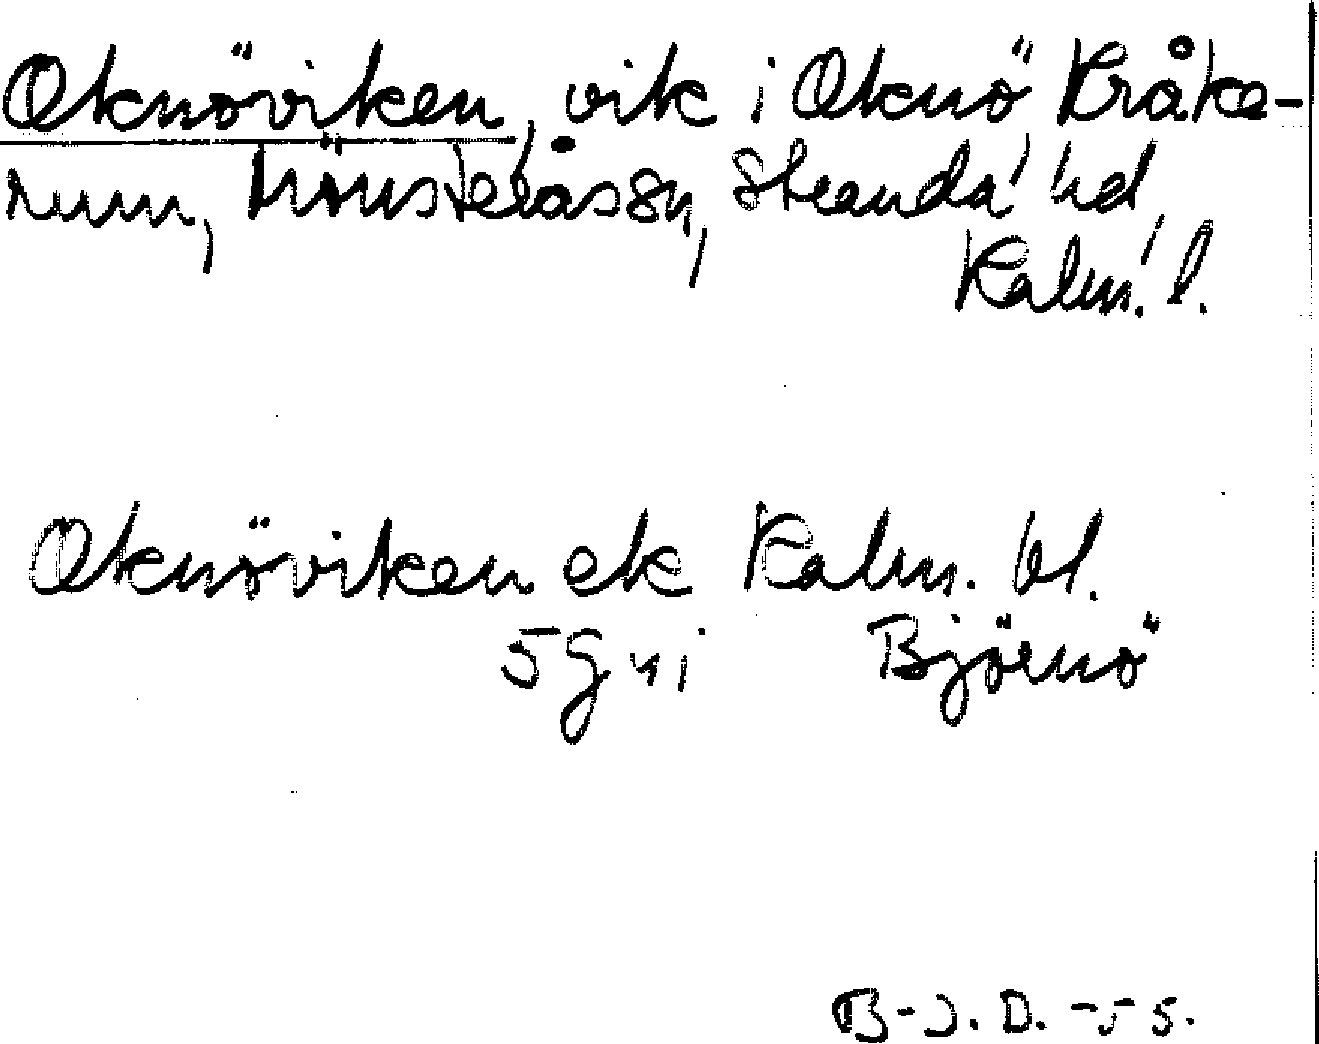 Oknöviken, vik i Oknö Kråke-
rum, Mönsterås sn, Stranda hd,
Kalm. l.
Oknöviken ek Kalm. bl.
5 g ni Björnö
B-J. D. -55.